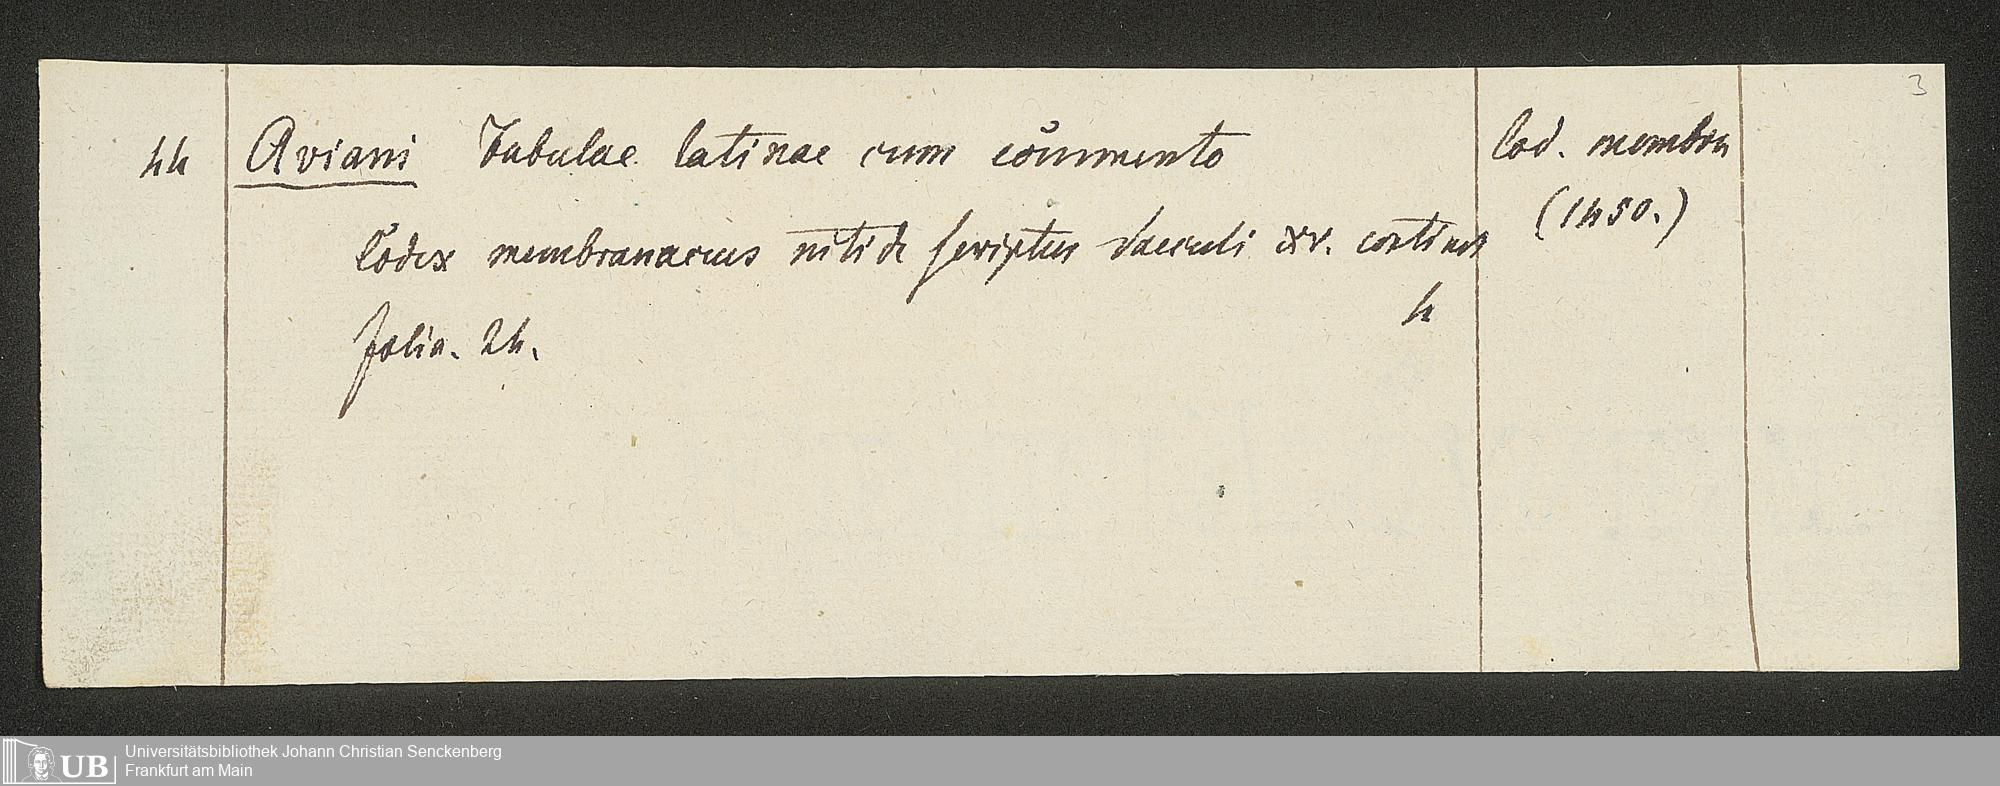 3
44 Aviani Fabulae latinae cum commento Cod. membra
(1450.)
Codex membranaceus nitide scriptus Saeculi XV. continet
4
folia. 24.
UB Universitätsbibliothek Johann Christian Senckenberg
Frankfurt am Main